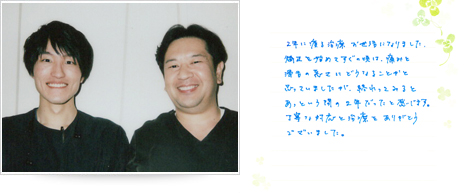 2年に渡る治療 お世話になりました。
矯正を始めてすぐの頃は、痛みと
滑舌の悪さにどうなることかと
思っていましたが、終わってみると
あっという間の2年だったと感じます。
丁寧な対応と治療と ありがとう
ございました。